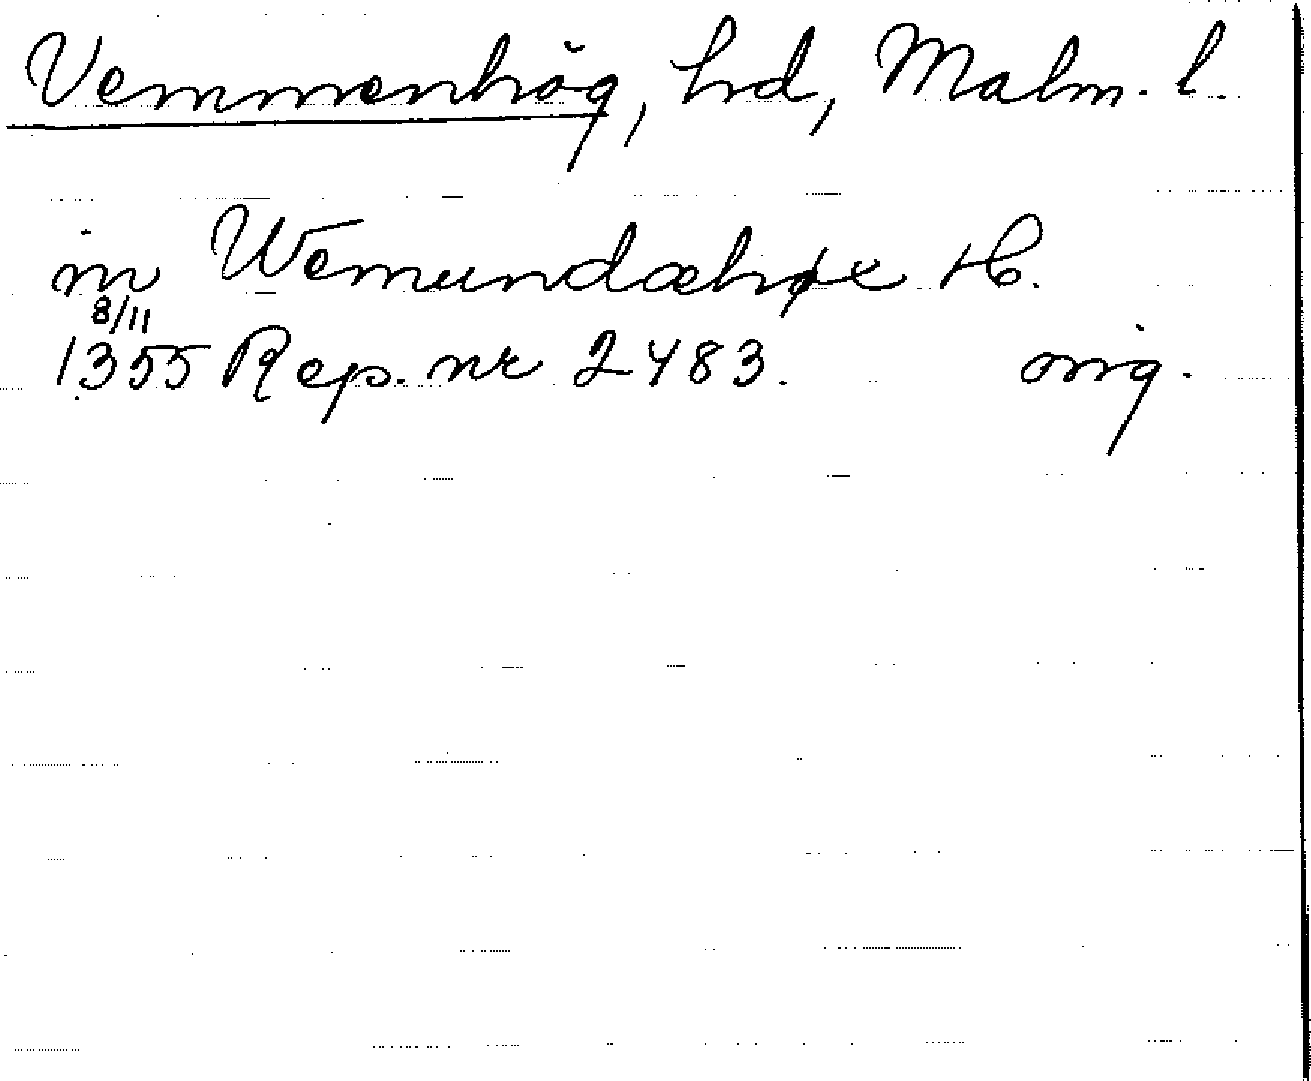 Vemmenhög, hd, Malm. l.
in Wemundæhøx H.
8/11
1355 Rep. nr 2483. orig.